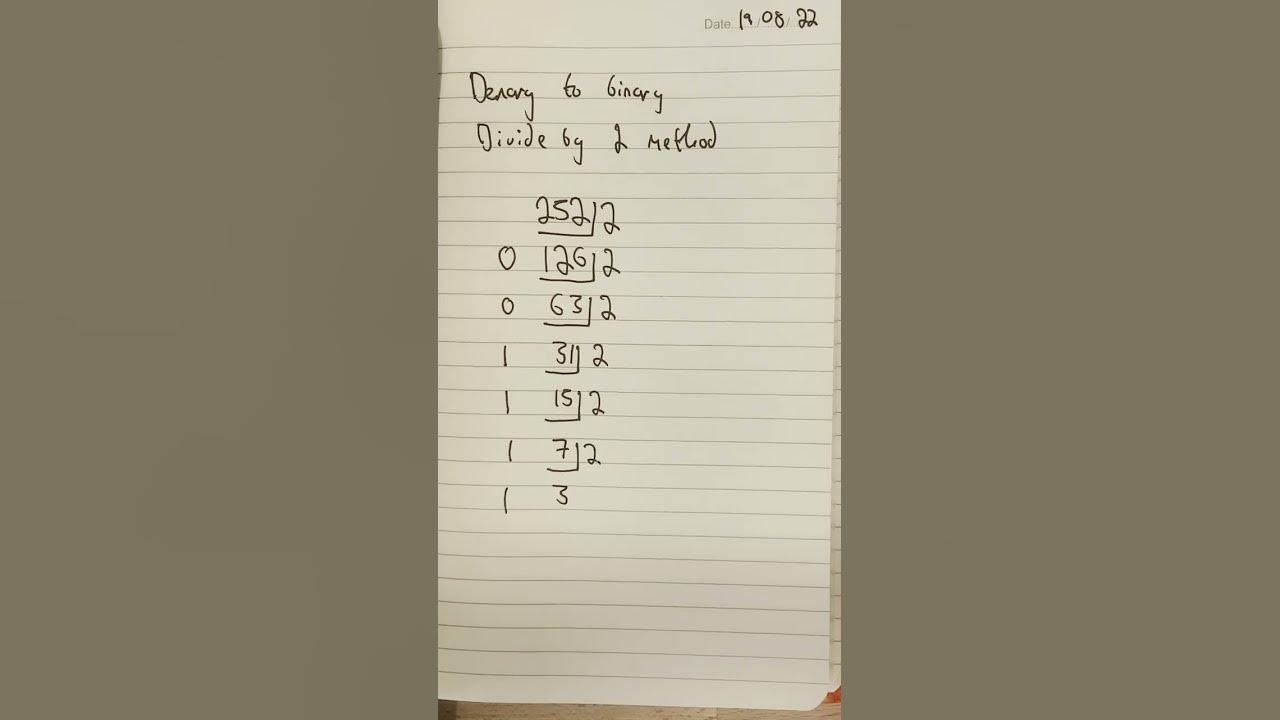 Date 19/08/22
Denary to binary
Divide by 2 method
252 2
0 126 2
0 63 2
1 31 2
1 15 2
1 7 2
1 3